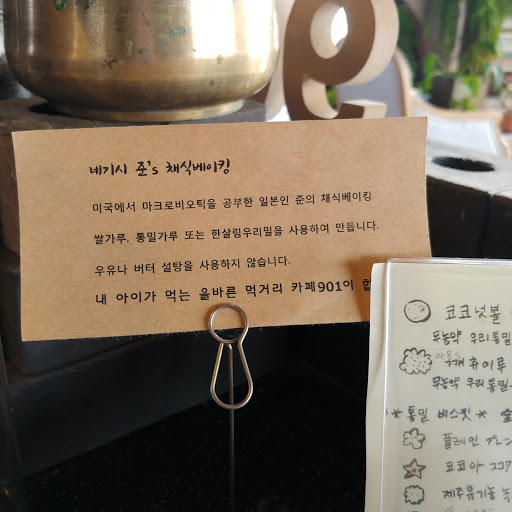 네기시 준's 채식베이킹
미국에서 마크로비오틱을 공부한 일본인 준의 채식베이킹
쌀가루, 통밀가루 또는 한살림우리밀을 사용하여 만듭니다.
우유나 버터 설탕을 사용하지 않습니다.
내 아이가 먹는 올바른 먹거리 카페901이
코코넛볼
무농약 우리통밀
아몬드
휴이루
무농약 우리통밀
* 통밀 비스킷 *
플레인 プレーン
코코아 ココア
제주유기농